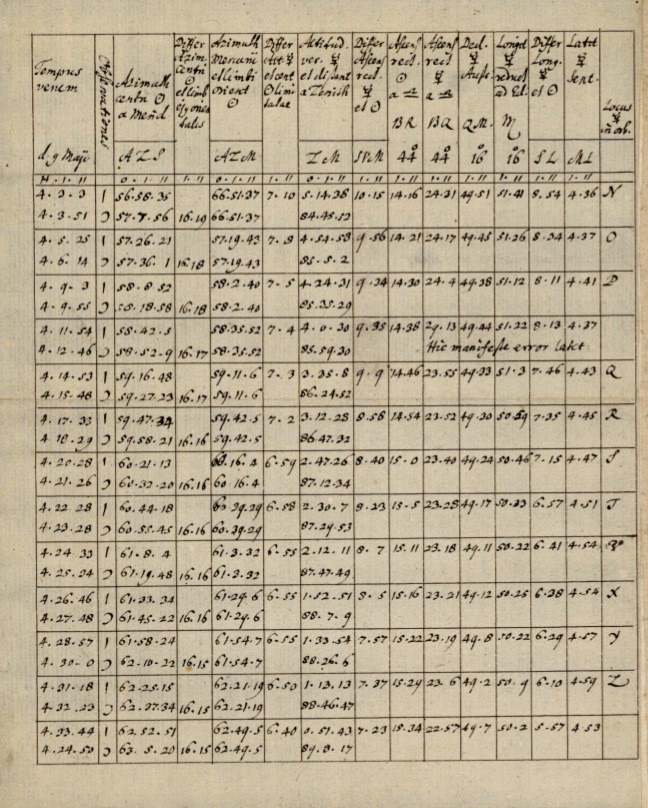 Tempus
verum
d. 9 Maji
Observationes
Azimuth
centri ☉
a Merid
A Z S
Differ
Azim.
centri
☉
et limbi
Azimuth
Mercurii
et limbi
orient
☉
A Z M
Differ
Altitud.
ver. ☿
et distant
a Zenith
Z M
Differ
Ascens
rect.
☿
et ☉
Ascens
rect
☉
B R
44
Ascens
rect
☿
B Q
44
Decl.
☿
Austr.
Q M.
16
Longit
☿
♏
16
Differ
Long.
☿
et ☉
S L
Latit
☿
M L
Locus
☿
H. I. II 0. I. II I. II 0. I. II I. II 0. I. II I. II I. II I. II I. II I. II I. II I. II
4. 3. 3 56.58.35 66.51.37 7.10 5.14.38 10.15 14.16 24.21 49.51 51.41 8.54 4.36 N
4. 3.51 57.7.56 16.19 66.51.37 84.45.22
4. 5. 25 57.26.21 57.19.43 7.8 4.54.58 9.56 14.21 24.17 49.45 51.26 8.34 4.37 O
4. 6. 14 57.36. 1 16.18 57.19.43 85. 5. 2
4. 9. 3 58. 8 52 58.2.40 7. 5 4.24.31 9.34 14.30 24.4 49.38 51.12 8.11 4.41
4. 9. 55 58.18.58 16.18 58.2.40 85.35.29
4. 11. 54 58.42.5 58.35.52 7.4 4. 0. 30 9.35 14.38 49.44 51.22 8.13 4.37
4. 12. 46 58.52.9 16.17 58.35.52 85.59.30 Hic manifeste error latet
4. 14. 53 59.16.48 59.11.6 7. 3 3.35.8 9. 9 14.46 23.55 49.33 51.3 7.46 4.43 Q
4. 15. 48 59.27.23 16.17 59.11.6 86.24.52
4. 17. 33 59.47.34 59.42.5 7. 2 3.12.28 8.58 14.54 23.52 49.30 50.59 7.35 4.45 R
4. 18. 29 59.58.21 16.16 59.42.5 86.47.32
4. 20.28 60.21.13 60.16.4 6.59 2.47.26 8.40 15.0 23.40 49.24 50.46 7.15 4.47 S
4. 21. 26 60.32.20 16.16 60.16.4 87.12.34
4. 22. 28 60.44.18 60.39.29 6.58 2.30.7 8.23 15.5 23.28 49.17 50.33 6.57 4.51 T
4. 23. 28 60.55.45 16.16 60.39.29 87.29.53
4. 24. 33 61. 8. 4 61.3.32 6.55 2.12.11 8. 7 15.11 23.18 49.11 50.22 6.41 4.54
4. 25. 34 61.19.48 16.16 61.3.32 87.47.49
4. 26. 46 61.33.34 61.29.6 6.55 1.52.51 8.5 15.16 23.21 49.12 50.25 6.38 4.54 X
4. 27. 48 61.45.22 16.16 61.29.6 88. 7. 9
4. 28. 57 61.58.24 61.54.7 6.55 1.33.54 7.57 15.22 23.19 49.8 50.22 6.29 4.57 Y
4. 30. 0 62.10.22 16.15 61.54.7 88.26.6
4. 31. 18 62.25.15 62.21.19 6.50 1.13.13 7.37 15.29 23.6 49.2 50.9 6.10 4.59 Z
4. 32. 23 62.37.34 16.15 62.21.19 88.46.47
4. 33. 44 62.52.51 62.49.5 6.40 0.51.43 7.23 15.34 22.57 49.7 50.2 5.57 4.53
4. 24. 50 63. 5. 20 16.15 62.49.5 89. 8. 17